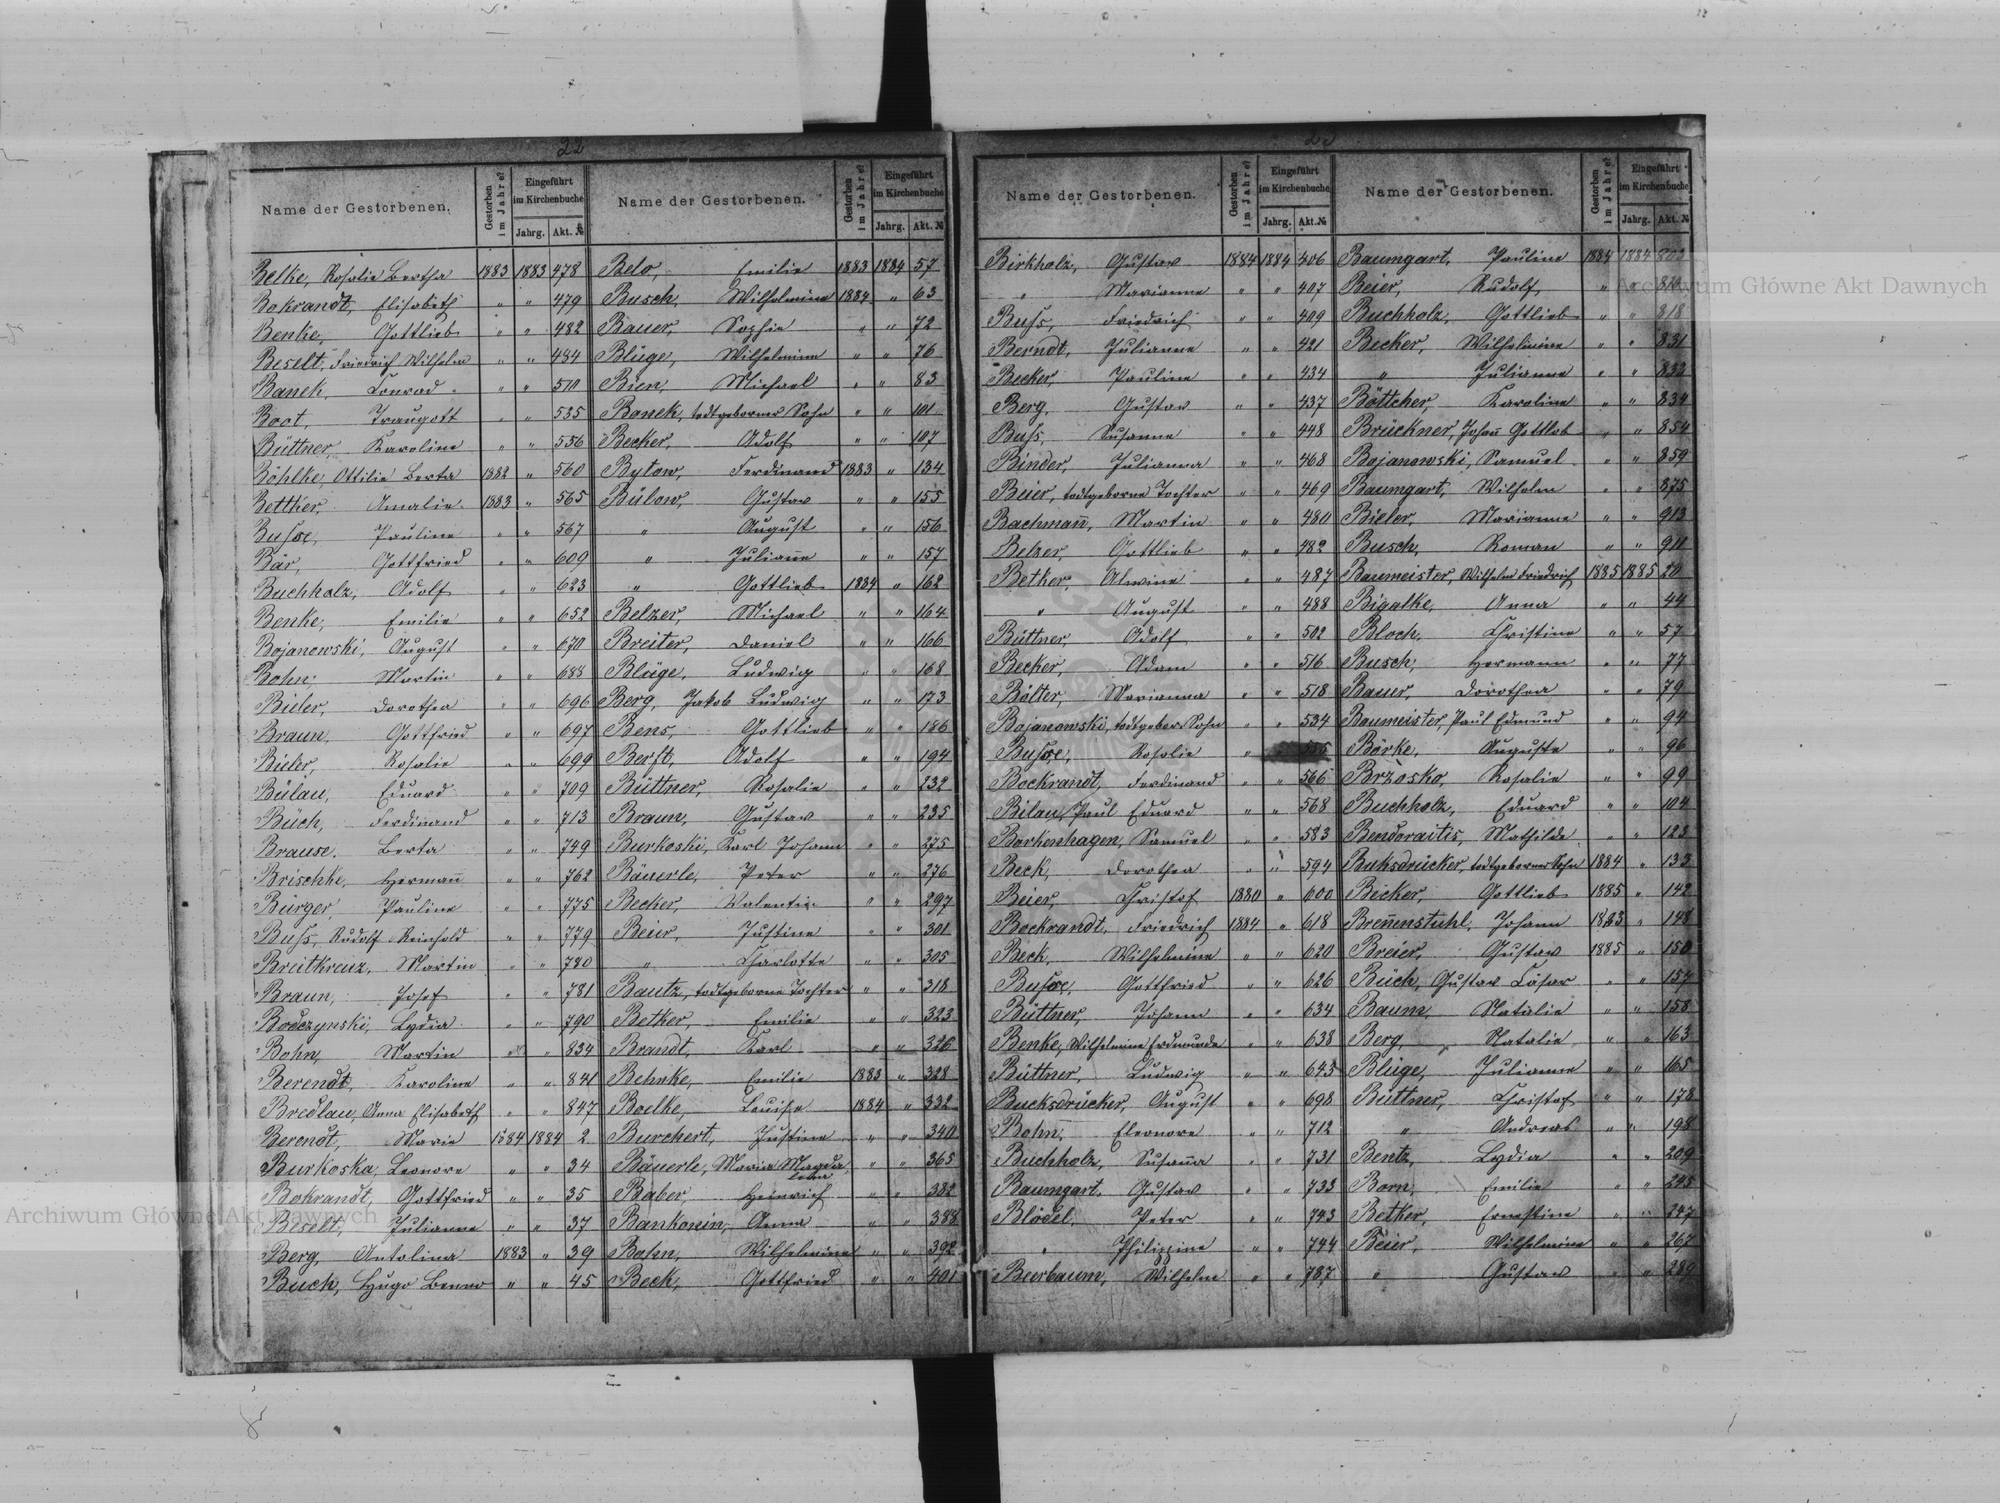 22
Name der Gestorbenen. Gestorben im Jahre Eingeführt im Kirchenbuche Jahrg. Akt. №
Belke, Rosalie Bertha 1883 1883 478
Bokrandt, Elisabeth " " 479
Benke, Gottlieb " " 482
Beselt, Friedrich Wilhelm " " 484
Banek, Conrad " " 510
Boot, Traugott " " 535
Büttner, Karoline " " 556
Böhlke, Ottilie Berta 1882 " 560
Bettker, Amalie 1883 " 565
Busse, Pauline " " 567
Bär, Gottfried " " 609
Buchholz, Adolf " " 623
Benke, Emilie " " 652
Bojanowski, August " " 670
Bohn, Martin " " 688
Bieler, Dorothea " " 696
Braun, Gottfried " " 697
Bieler, Rosalie " " 699
Bülau, Eduard " " 709
Büch, Ferdinand " " 713
Brause, Berta " " 749
Brischke, Hermañ " " 762
Burger, Pauline " " 775
Buss, Rudolf Reinhold " " 779
Breitkreuz, Martin " " 780
Braun, Josef " " 781
Bodczynski, Lydia " " 790
Bohn, Martin " " 834
Berendt, Karoline " " 841
Bredlau, Anna Elisabeth " " 847
Berendt, Marie 1884 1884 2
Burkoska, Leonore " " 34
Bokrandt, Gottfried " " 35
Beselt, Julianne " " 37
Berg, Antolina 1883 " 39
Buch, Hugo Benno " " 45
Name der Gestorbenen. Gestorben im Jahre Eingeführt im Kirchenbuche Jahrg. Akt. №
Belo, Emilie 1883 1884 57
Busch, Wilhelmine 1884 " 63
Bauer, Sophie " " 72
Bluge, Wilhelmine " " 76
Bien, Michael " " 83
Banek, todtgeborner Sohn " " 101
Becker, Adolf " " 107
Bytow, Ferdinand 1883 " 134
Bülow, Gustav " " 155
" August " " 156
" Juliañe " " 157
" Gottlieb 1884 " 162
Belzer, Michael " " 164
Breiter, Daniel " " 166
Bluge, Ludwig " " 168
Berg, Jakob Ludwig " " 173
Bens, Gottlieb " " 186
Berft, Adolf " " 194
Büttner, Rosalie " " 232
Braun, Gustav " " 235
Burkoski, Karl Johann " " 275
Bäuerle, Peter " " 276
Becker, Valentin " " 297
Beier, Justine " " 301
" Charlotte " " 305
Bautz, todtgeborne Tochter " " 318
Betker, Emilie " " 323
Brandt, Karl " " 326
Behnke, Emilie 1883 " 328
Boelke, Louise 1884 " 332
Burchert, Justine " " 340
Bäuerle, Maria Magdalena " " 365
Baber Heinrich " " 382
Bankonin, Anna " " 388
Bohn, Wilhelmine " " 392
Beck, Gottfried " " 401
Name der Gestorbenen. Gestorben im Jahre Eingeführt im Kirchenbuche Jahrg. Akt. №
Birkholz, Gustav 1884 1884 406
" Marianne " " 407
Buss, Friedrich " " 409
Berndt, Julianne " " 421
Becker, Pauline " " 434
Berg, Gustav " " 437
Buss, Susanne " " 448
Binder, Julianna " " 468
Beier, todtgeborne Tochter " " 469
Bachmañ, Martin " " 480
Belzer, Gottlieb " " 482
Betker, Alwine " " 487
" August " " 488
Büttner, Adolf " " 502
Becker, Adam " " 516
Bölter, Marianna " " 518
Bojanowski, todtgebor Sohn " " 534
Busse, Rosalie "
Bockrandt, Ferdinand " " 566
Bilau, Paul Eduard " " 568
Borkenhagen, Samuel " " 583
Beck, Dorothea " " 594
Beier, Christof 1880 " 600
Bockrandt, Friedrich 1884 " 618
Beck, Wilhelmine " " 620
Busse, Gottfried " " 626
Büttner, Johann " " 634
Benke, Wilhelmine Erdmunda " " 638
Büttner, Ludwig " " 643
Bucksdrücker, August " " 698
Bohn, Eleonore " " 712
Buchholz, Susaña " " 731
Baumgart, Gustav " " 733
Blödel, Peter " " 743
" Philippine " " 744
Bierbaum, Wilhelm " " 787
Name der Gestorbenen. Gestorben im Jahre Eingeführt im Kirchenbuche Jahrg. Akt. №
Baumgart, Pauline 1884 1884 803
Beier, Rudolf " " 810
Buchholz, Gottlieb " " 818
Becker, Wilhelmine " " 831
" Julianne " " 833
Böttcher, Karoline " " 834
Brückner, Johañ Gottlob " " 854
Bojanowski, Samuel " " 859
Baumgart, Wilhelm " " 875
Bieler, Marianne " " 913
Busch, Roman " " 911
Baumeister, Wilhelm Friedrich 1885 1885 20
Bigalke, Anna " " 44
Bloch, Christine " " 57
Busch, Hermann " " 77
Bauer, Dorothea " " 79
Baumeister, Paul Edmund " " 94
Börke, Auguste " " 96
Brzosko, Rosalie " " 99
Buchholz, Eduard " " 104
Bendoraitis, Mathilde " " 123
Buksdrücker, todtgeborner Sohn 1884 " 133
Becker, Gottlieb 1885 " 142
Breñenstuhl, Johann 1883 " 148
Breier, Gustav 1885 " 150
Büch, Gustav Cäsar " " 157
Baum, Natalie " " 158
Berg, Natalie " " 163
Bluge, Julianne " " 165
Büttner, Christof " " 178
" Andreas " " 198
Bentz, Lydia " " 209
Born, Emilie " "
Betker, Ernestine " " 247
Beier, Wilhelmine " " 267
" Gustav " " 289
Archiwum Główne Akt Dawnych
Archiwum Główne Akt Dawnych